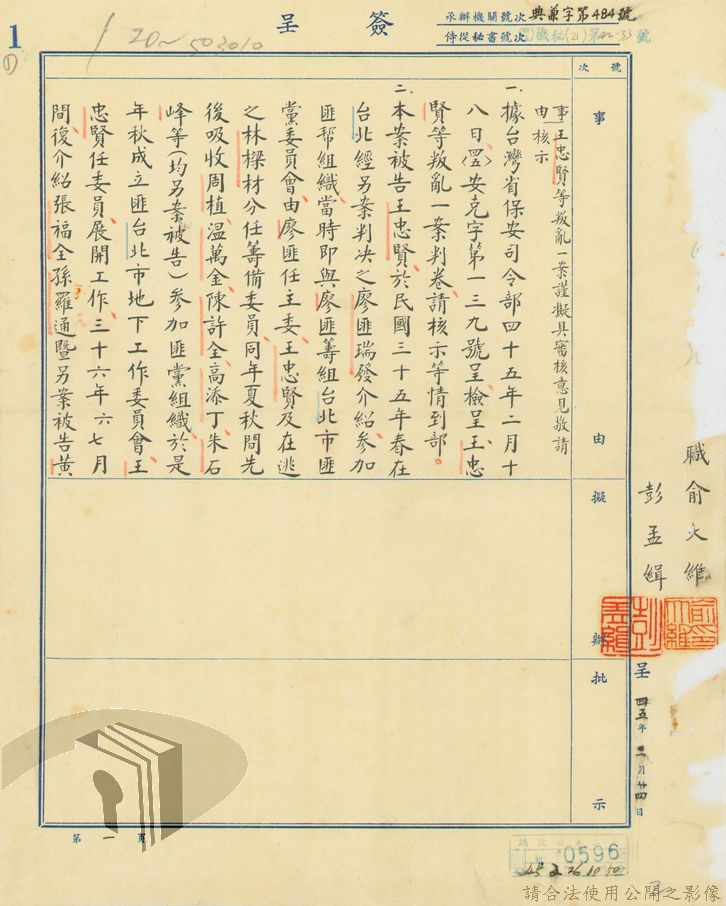 簽呈
承辦機關號次 典兼字第484號
侍從秘書號次 機秘(乙)第 號
1
(1)
號次
事由
擬辦
批示
事由 王忠賢等叛亂一案謹擬具審核意見敬請
核示
一、據台灣省保安司令部四十五年二月十
八日(45)安克字第一三九號呈、檢呈王忠
賢等叛亂一案判卷、請核示等情到部。
二、本案被告王忠賢、於民國三十五年春在
台北經另案判決之廖匪瑞發介紹、參加
匪幫組織、當時即與廖匪籌組台北市匪
黨委員會、由廖匪任主委、王忠賢及在逃
之林樑材分任籌備委員、同年夏秋間先
後吸收周植、溫萬金、陳許全、高添丁、朱石
峰等(均另案被告)參加匪黨組織、於是
年秋成立匪台北市地下工作委員會、王
忠賢任委員、展開工作、三十六年六七月
間、復介紹張福全、孫羅通暨另案被告黃
職俞大維
彭孟緝
呈 四五年二月廿四日
第一頁
0596
45 2 26 10 50
請合法使用公開之影像